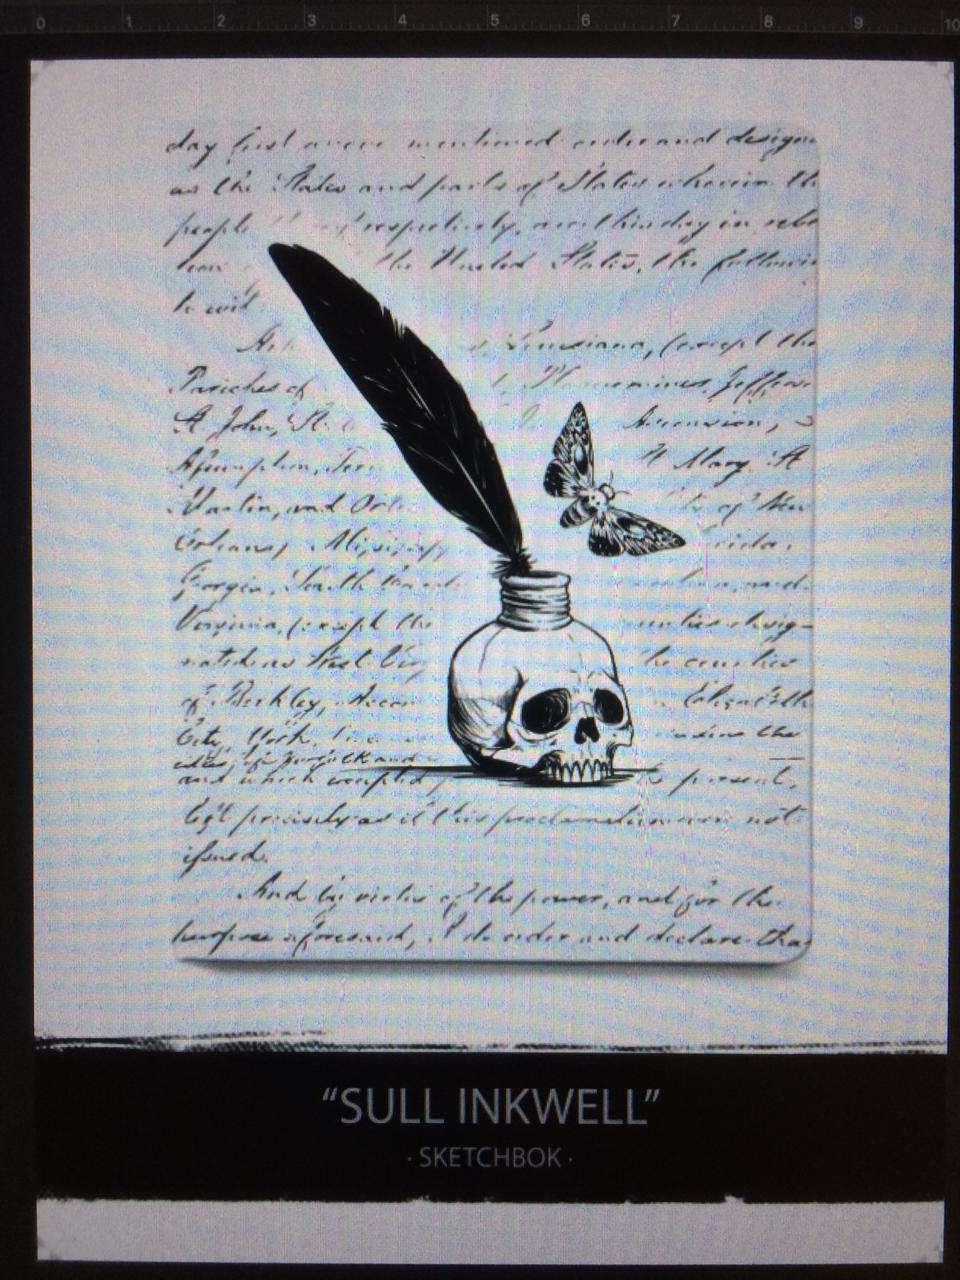 0 1 2 3 4 5 6 7 8 9 10
day first above mentioned order and design
as the States and parts of States wherein th
people respectively, are this day in rebe
the United States, the followi
to wit
Louisiana, (except the
Parishes of Plaquemines, Jeffers
St John, St. Ascension,
Assumption, Terr St Mary St
Martin, and Orl of New
Orleans) Mississippi
Georgia, South
Virginia, (except the
West Vir the counties
of Berkley, Accom Elizabeth
City, York,
and which excepted present,
left precisely as if this proclamation were not
issued.
And by virtue of the power, and for the
purpose aforesaid, I do order and declare that
“SULL INKWELL”
· SKETCHBOK ·